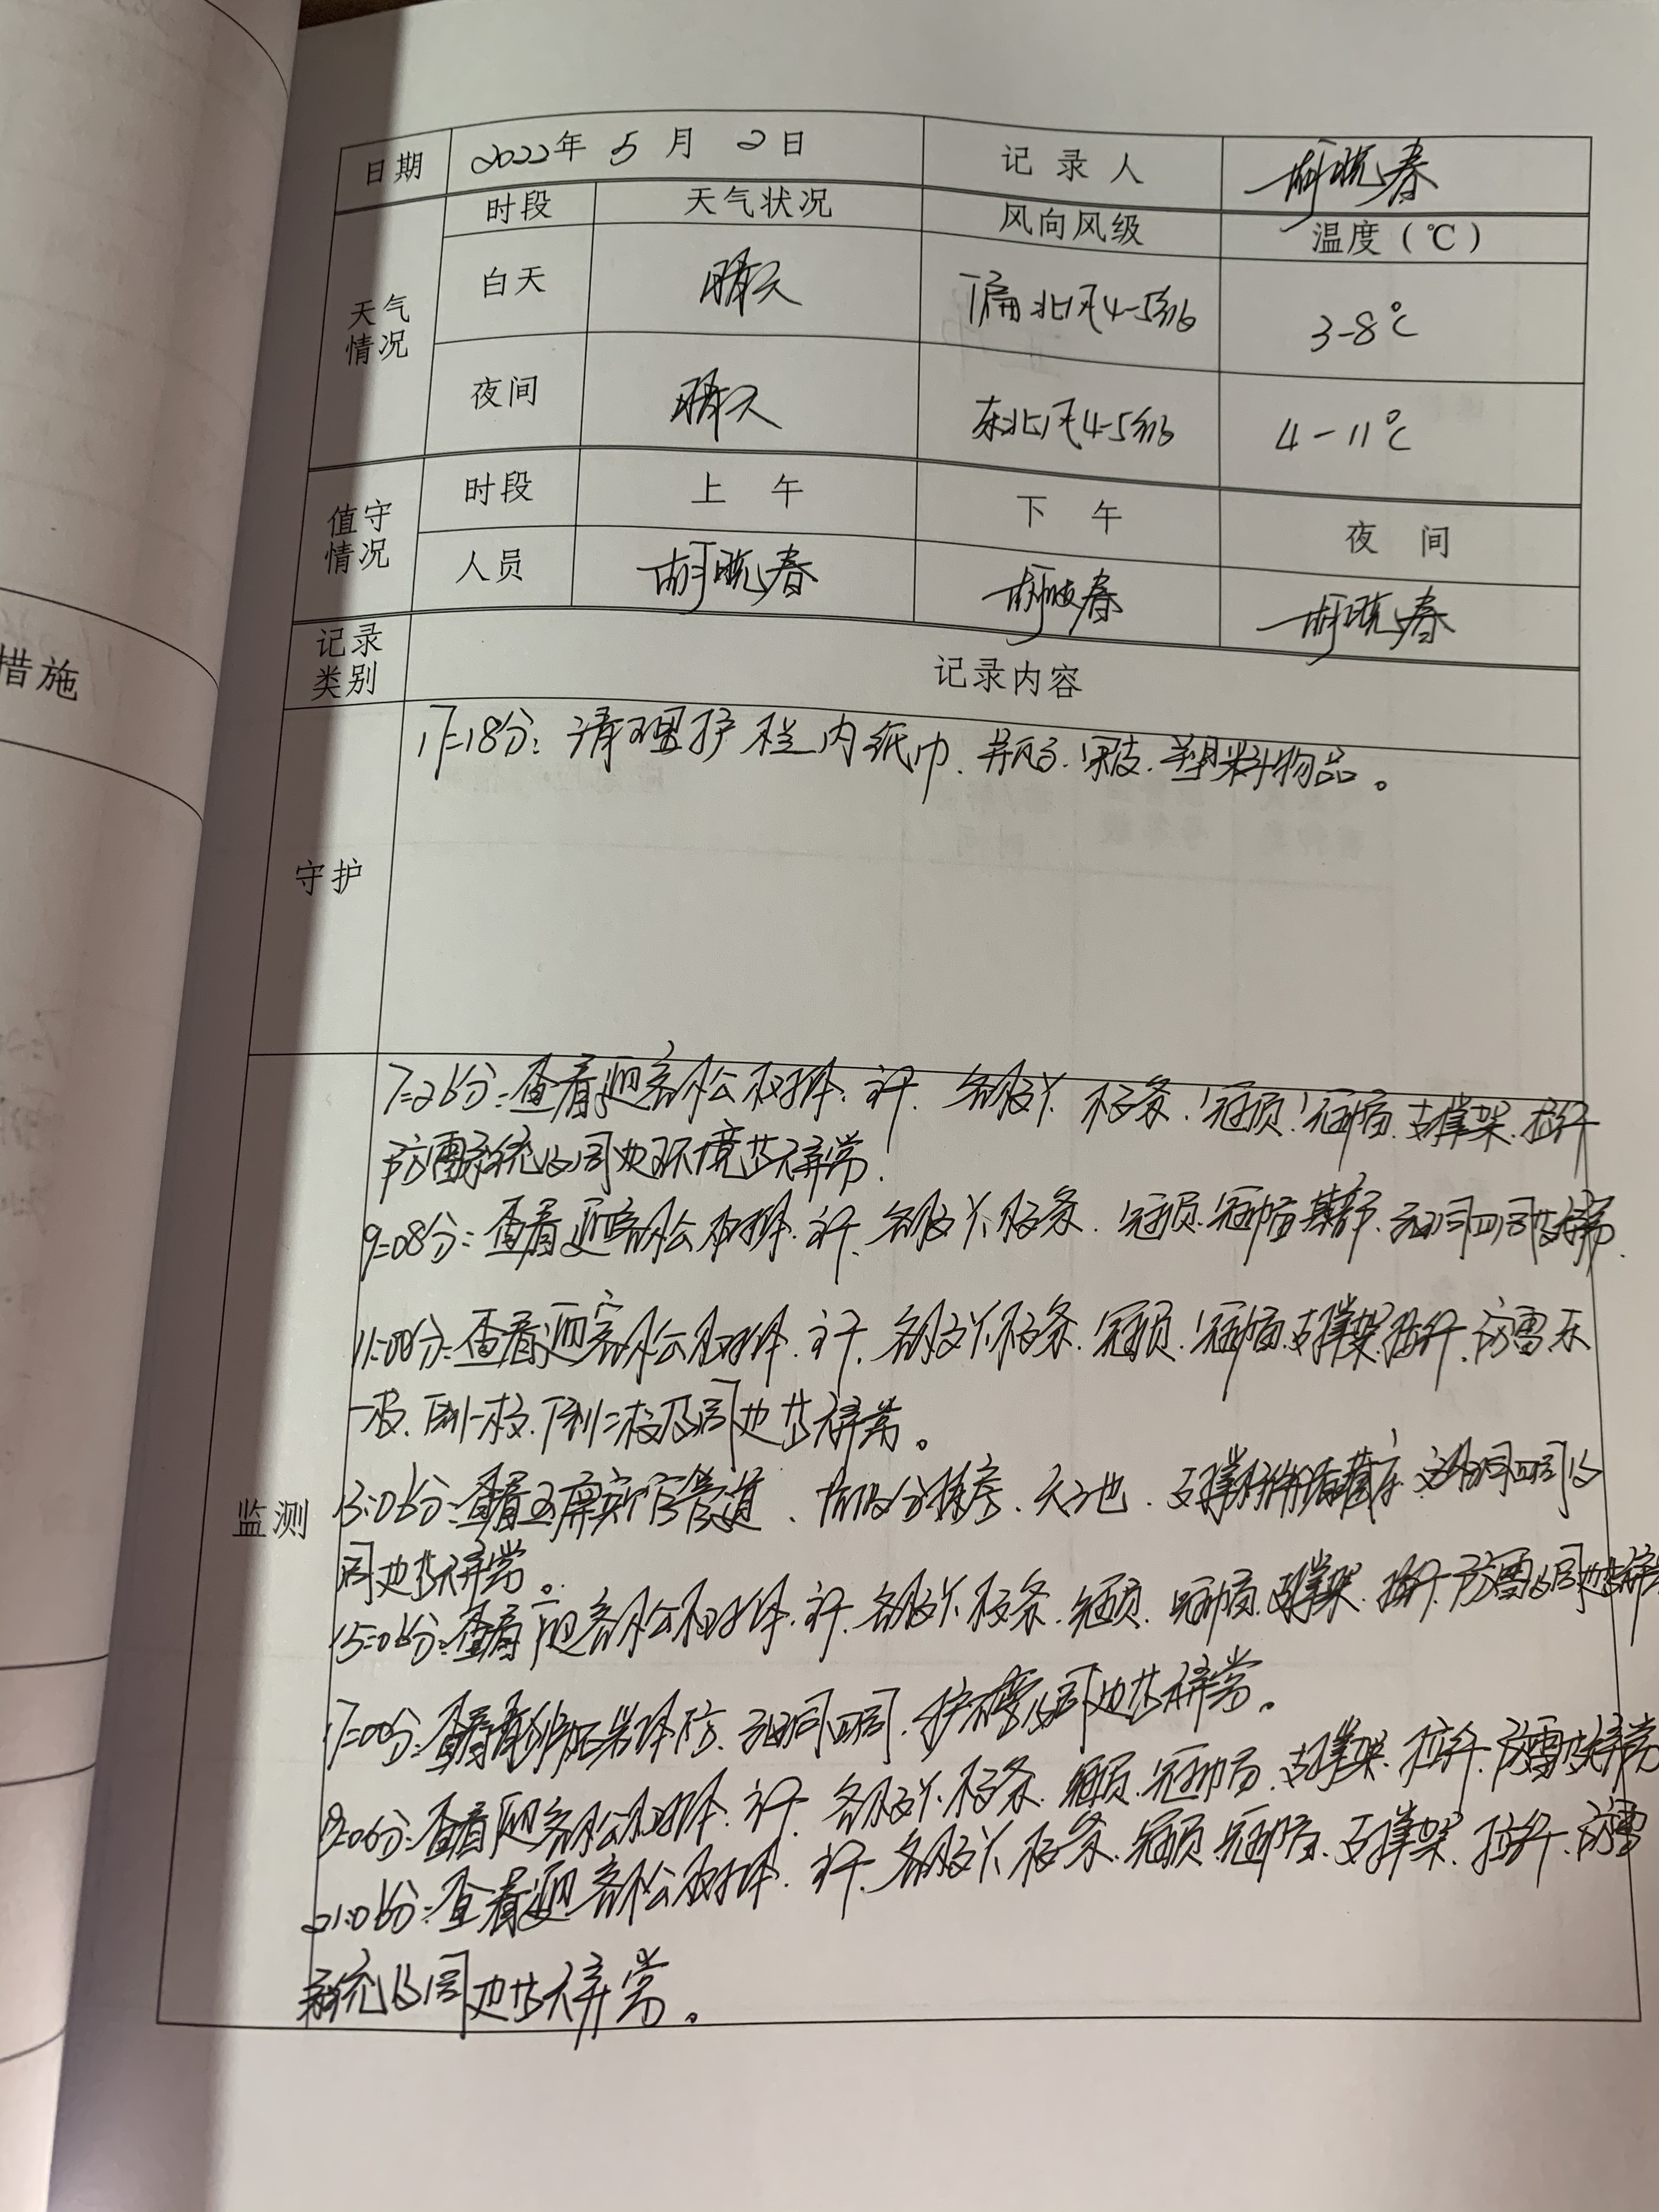 措施
日期 2022年 5 月 2日 记 录 人 胡晓春
天气情况 时段 天气状况 风向风级 温度(℃)
白天 晴天 偏北风4-5级 3-8℃
夜间 晴天 东北风4-5级 4-11℃
值守情况 时段 上 午 下 午 夜 间
人员 胡晓春 胡晓春 胡晓春
记录类别 记录内容
守护
17=18分:清理护栏内纸巾、并瓶、果皮、塑料物品。
监测
7=26分:查看迎客松树体、主干、各级丫、枝条、冠顶、冠幅、支撑架、拉纤
防雷系统及周边环境均无异常.
9=08分:查看迎客松树体、主干、各级丫、枝条、冠顶、冠幅、基部、
11:00分:查看迎客松树体、主干、各级丫、枝条、冠顶、冠幅、支撑架、拉纤、防雷、东
一枝、西侧一枝、下侧二枝及周边均无异常。
13:06分:查看玉屏 管道、
周边均无异常。
15=06分:查看迎客松树体、主干、各级丫、枝条、冠顶、冠幅、支撑架、拉纤、防雷及周边均无异常
17=00分:查看 及周边均无异常。
19=06分:查看迎客松树体、主干、各级丫、枝条、冠顶、冠幅、支撑架、拉纤、防雷均无异常
21:06分:查看迎客松树体、主干、各级丫、枝条、冠顶、冠幅、支撑架、拉纤、防雷
系统及周边均无异常。